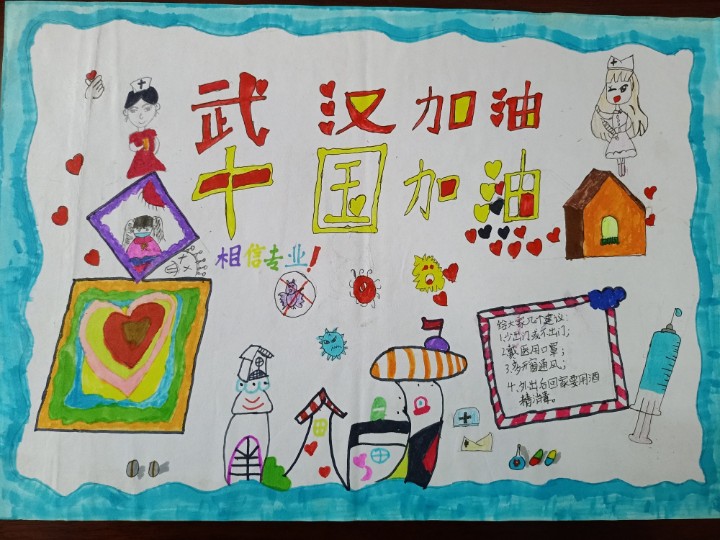 武汉加油
中国加油
相信专业!
给大家几个建议:
1.少出门或不出门;
2.戴医用口罩;
3.多开窗通风;
4.外出后回家要用酒
精消毒。